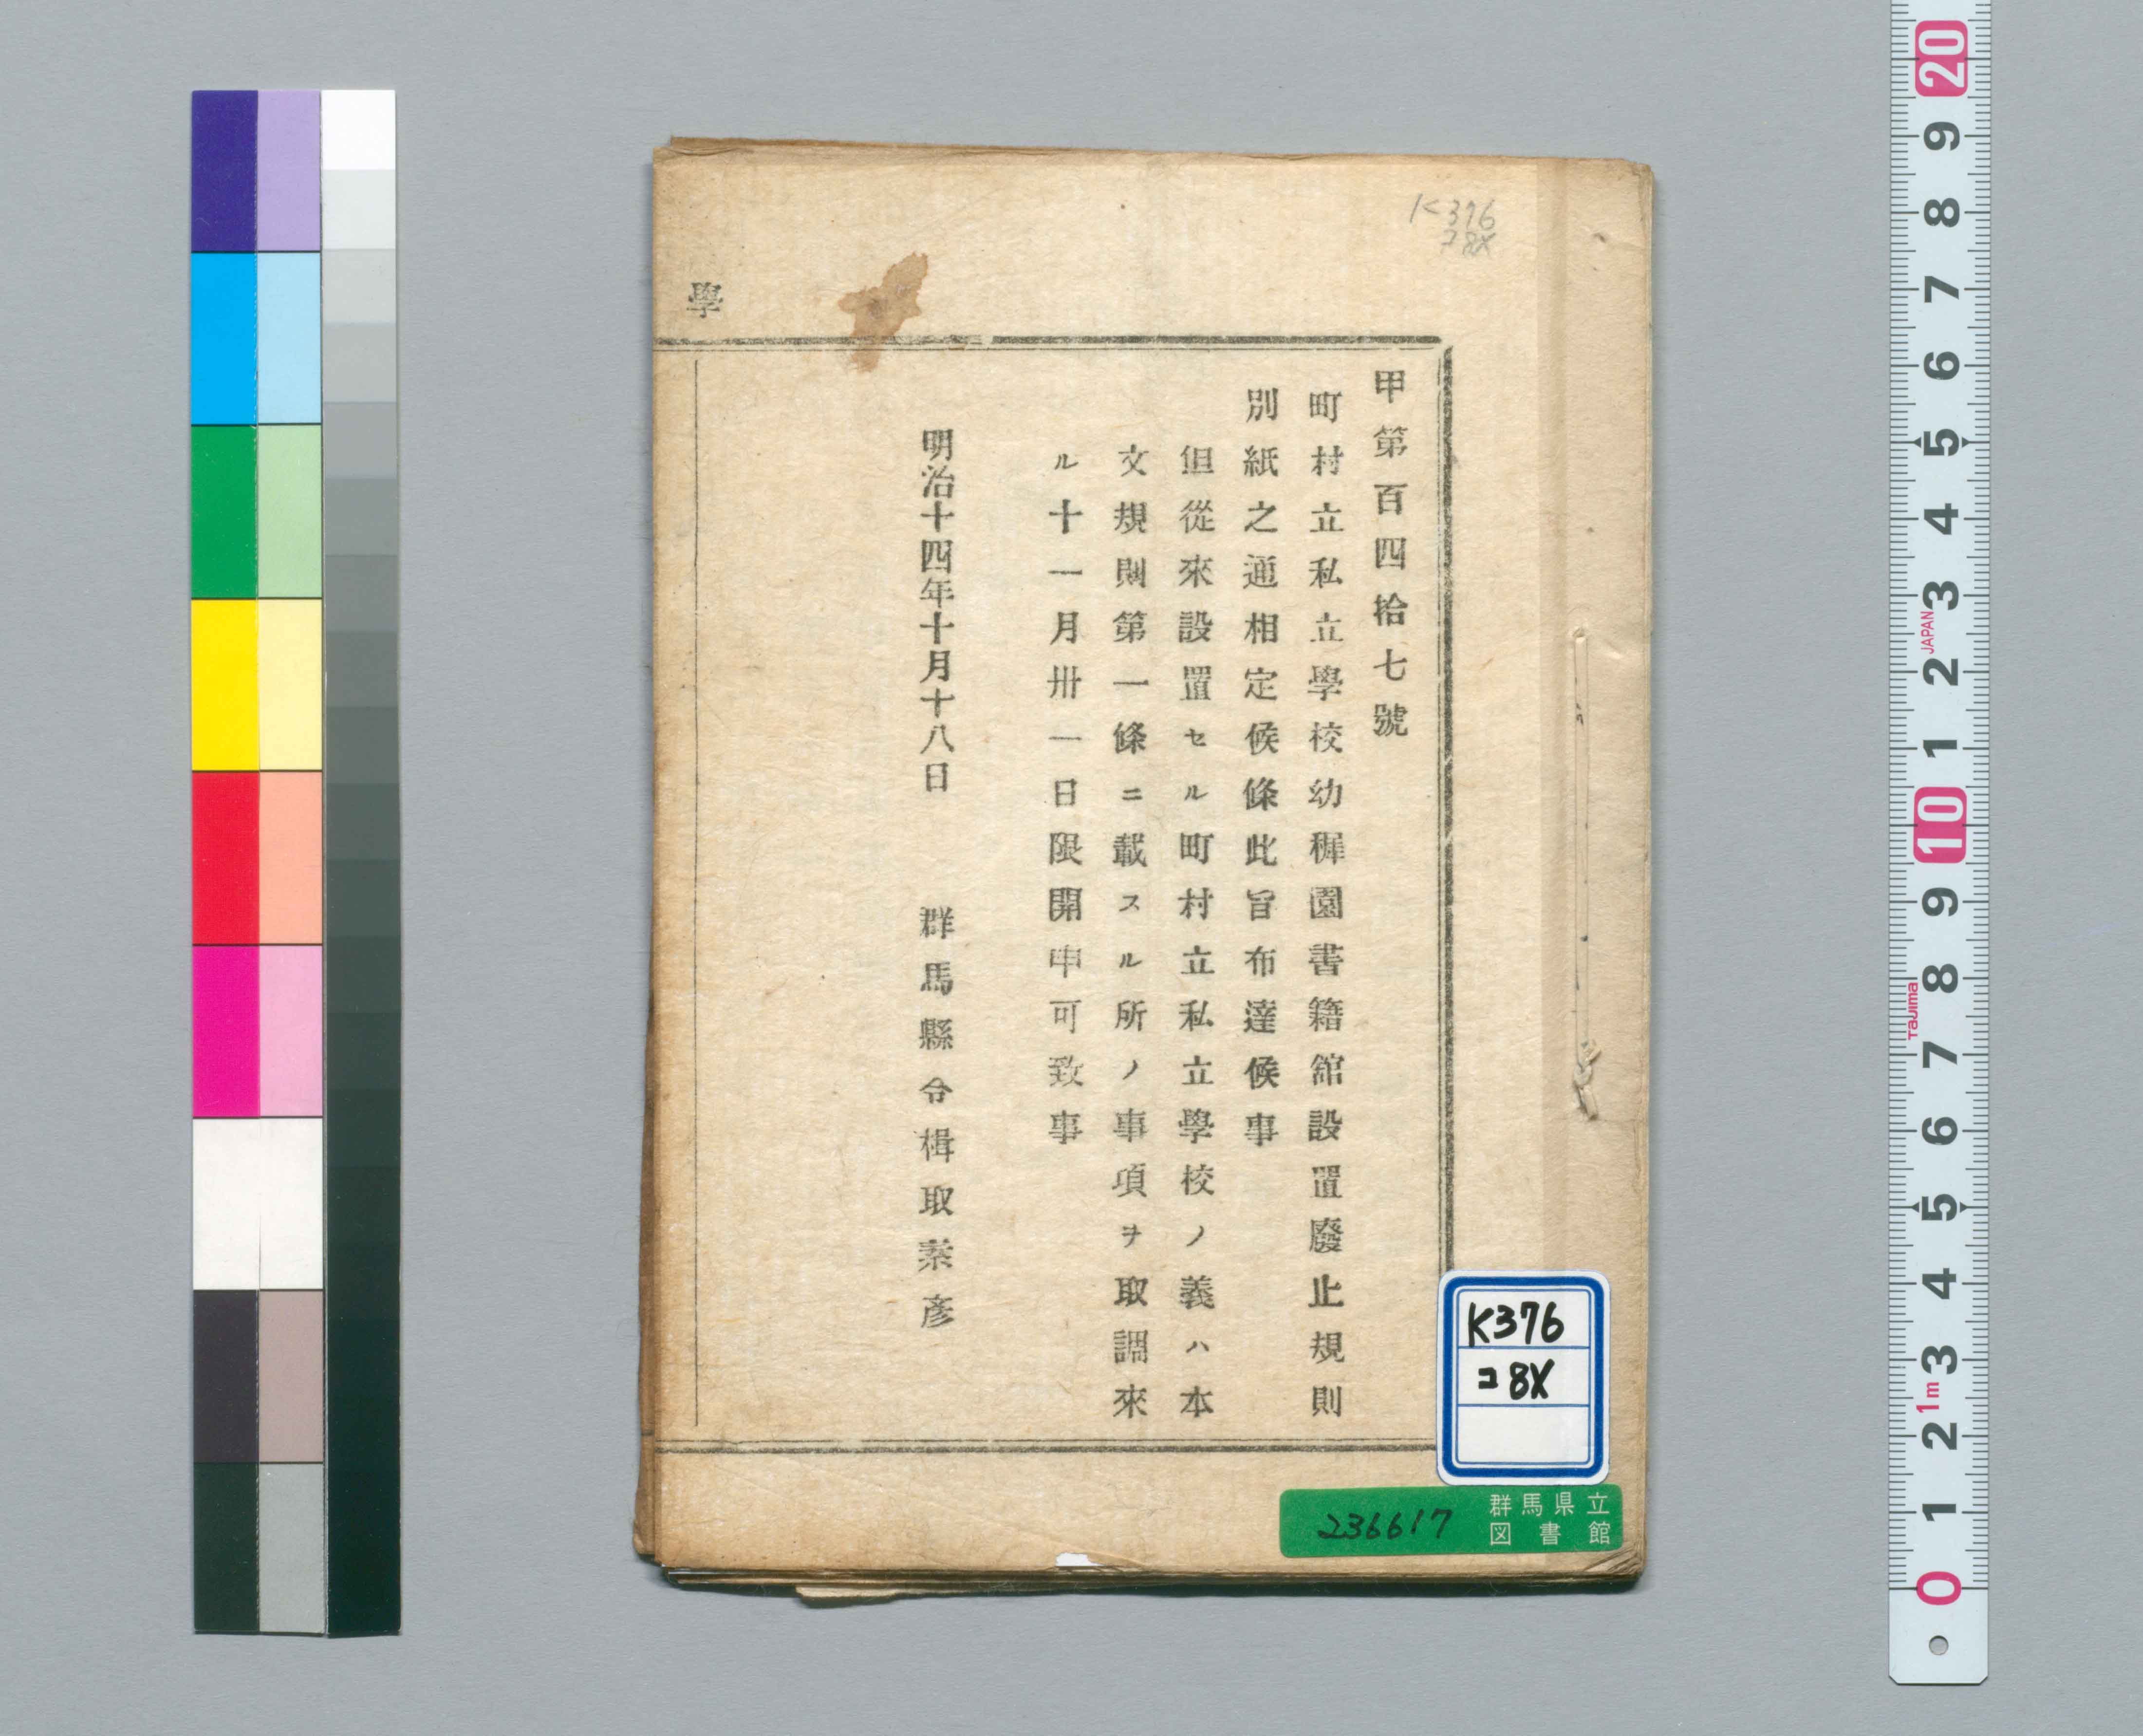 甲第百四拾七號
町村立私立學校幼穉園書籍舘設置廢止規則
別紙之通相定候條此旨布達候事
但從來設置セル町村立私立學校ノ義ハ本
文規則第一條ニ載スル所ノ事項ヲ取調來
ル十一月卅一日限開申可致事
明治十四年十月十八日 群馬縣令楫取素彥
學
K376
コ8X
K376
コ8X
236617
群馬県立
図書館
20
9
8
7
6
5
4
3
JAPAN
2
1
10
9
8
Tajima
7
6
5
4
3
1m
2
1
0